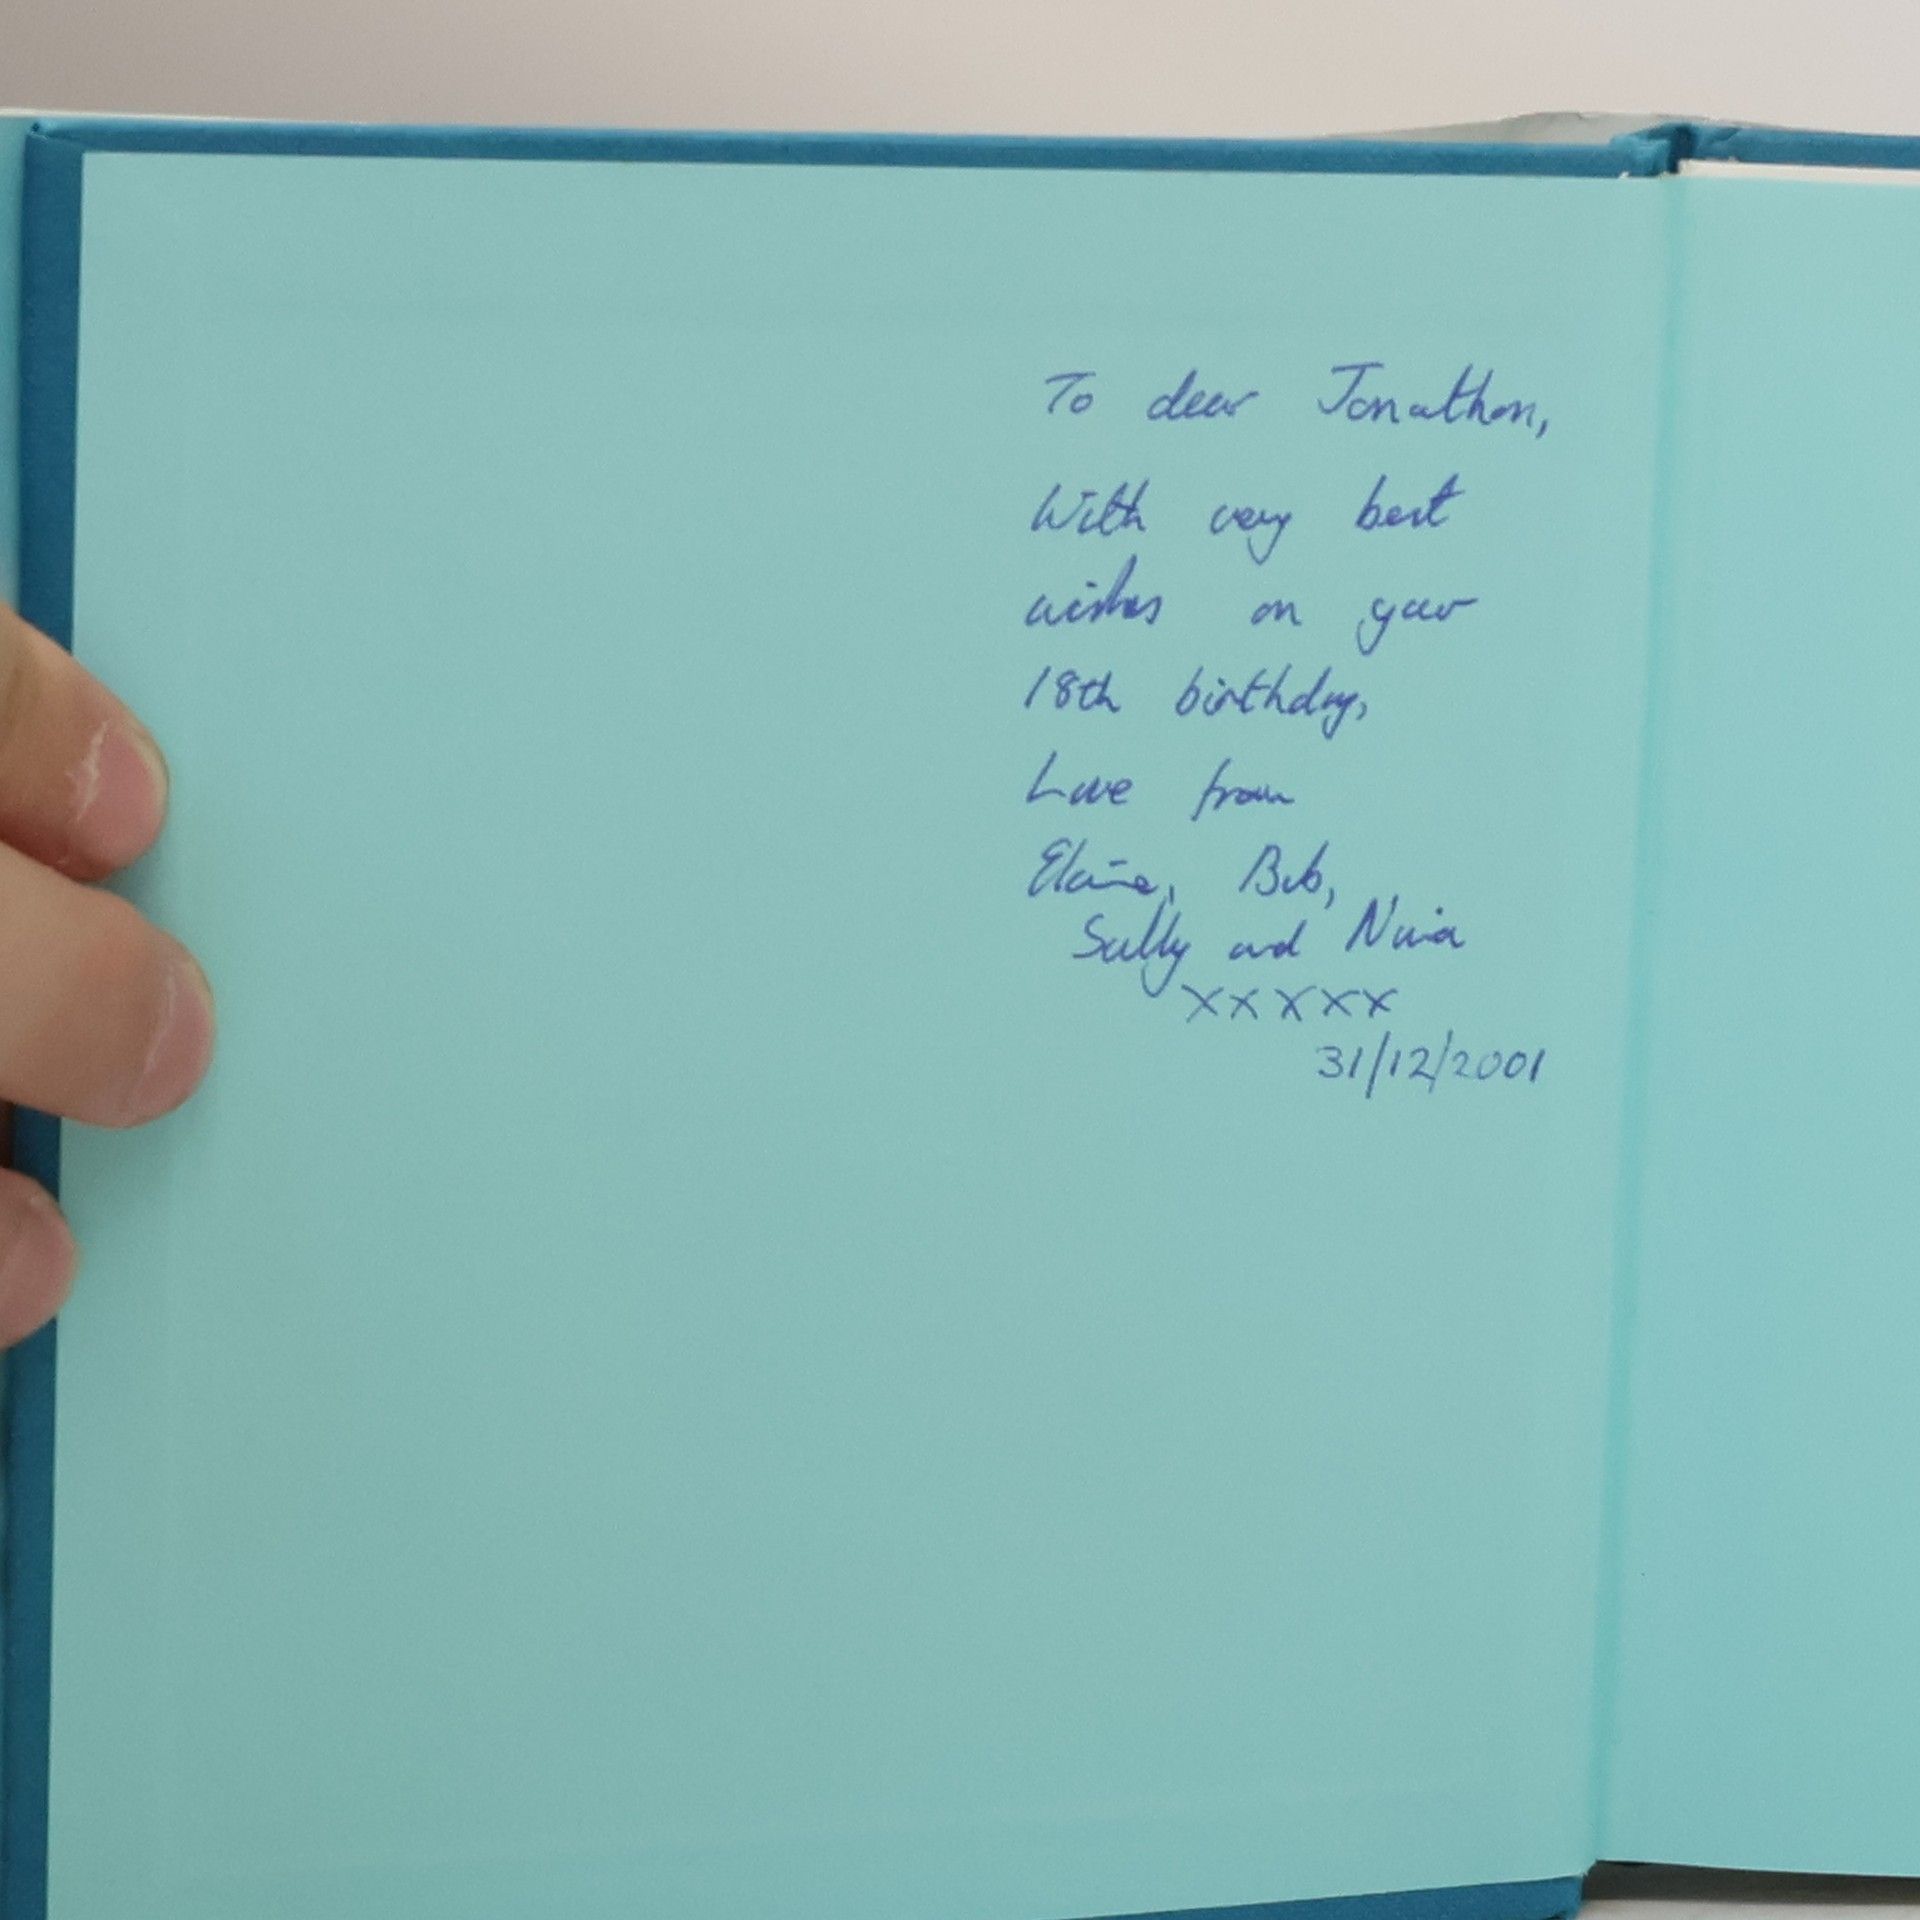 To dear Jonathon,
With very best
wishes on your
18th birthday,
Love from
Elaine, Bob,
Sally and Nina
xxxxx
31/12/2001